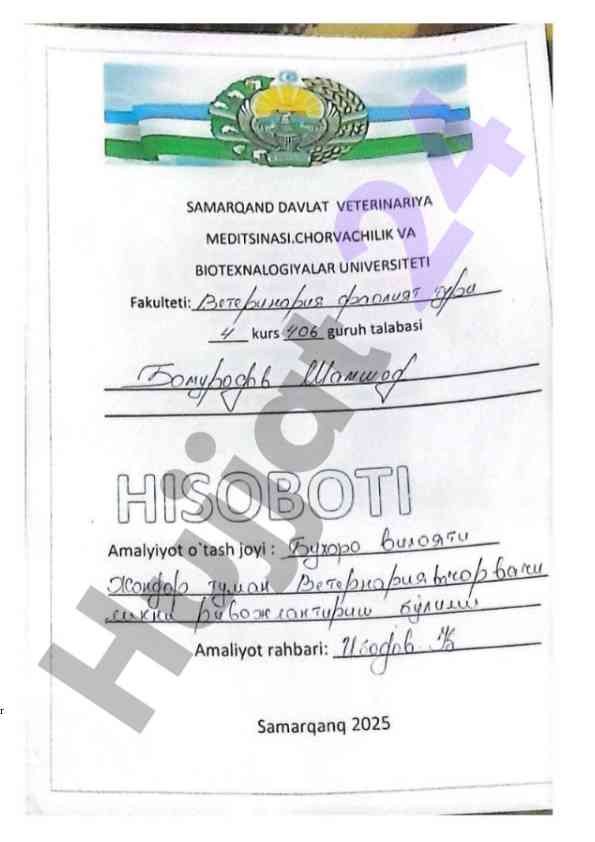 SAMARQAND DAVLAT VETERINARIYA
MEDITSINASI.CHORVACHILIK VA
BIOTEXNALOGIYALAR UNIVERSITETI
Fakulteti: Ветеринария фаолият тури
4 kurs 406 guruh talabasi
Бомуродов Шамшод
HISOBOTI
Amalyiyot o`tash joyi : Бухоро вилояти
Жондор туман Ветернария ва чорвачи
ликни ривожлантириш бўлими
Amaliyot rahbari: Ибодов
Samarqanq 2025
Hujjat 24
r